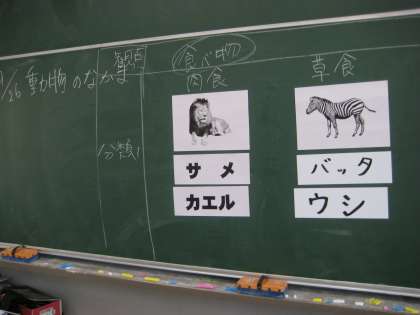 1/26 動物のなかま
観点
食べ物
肉食
草食
分類1
サメ
バッタ
カエル
ウシ